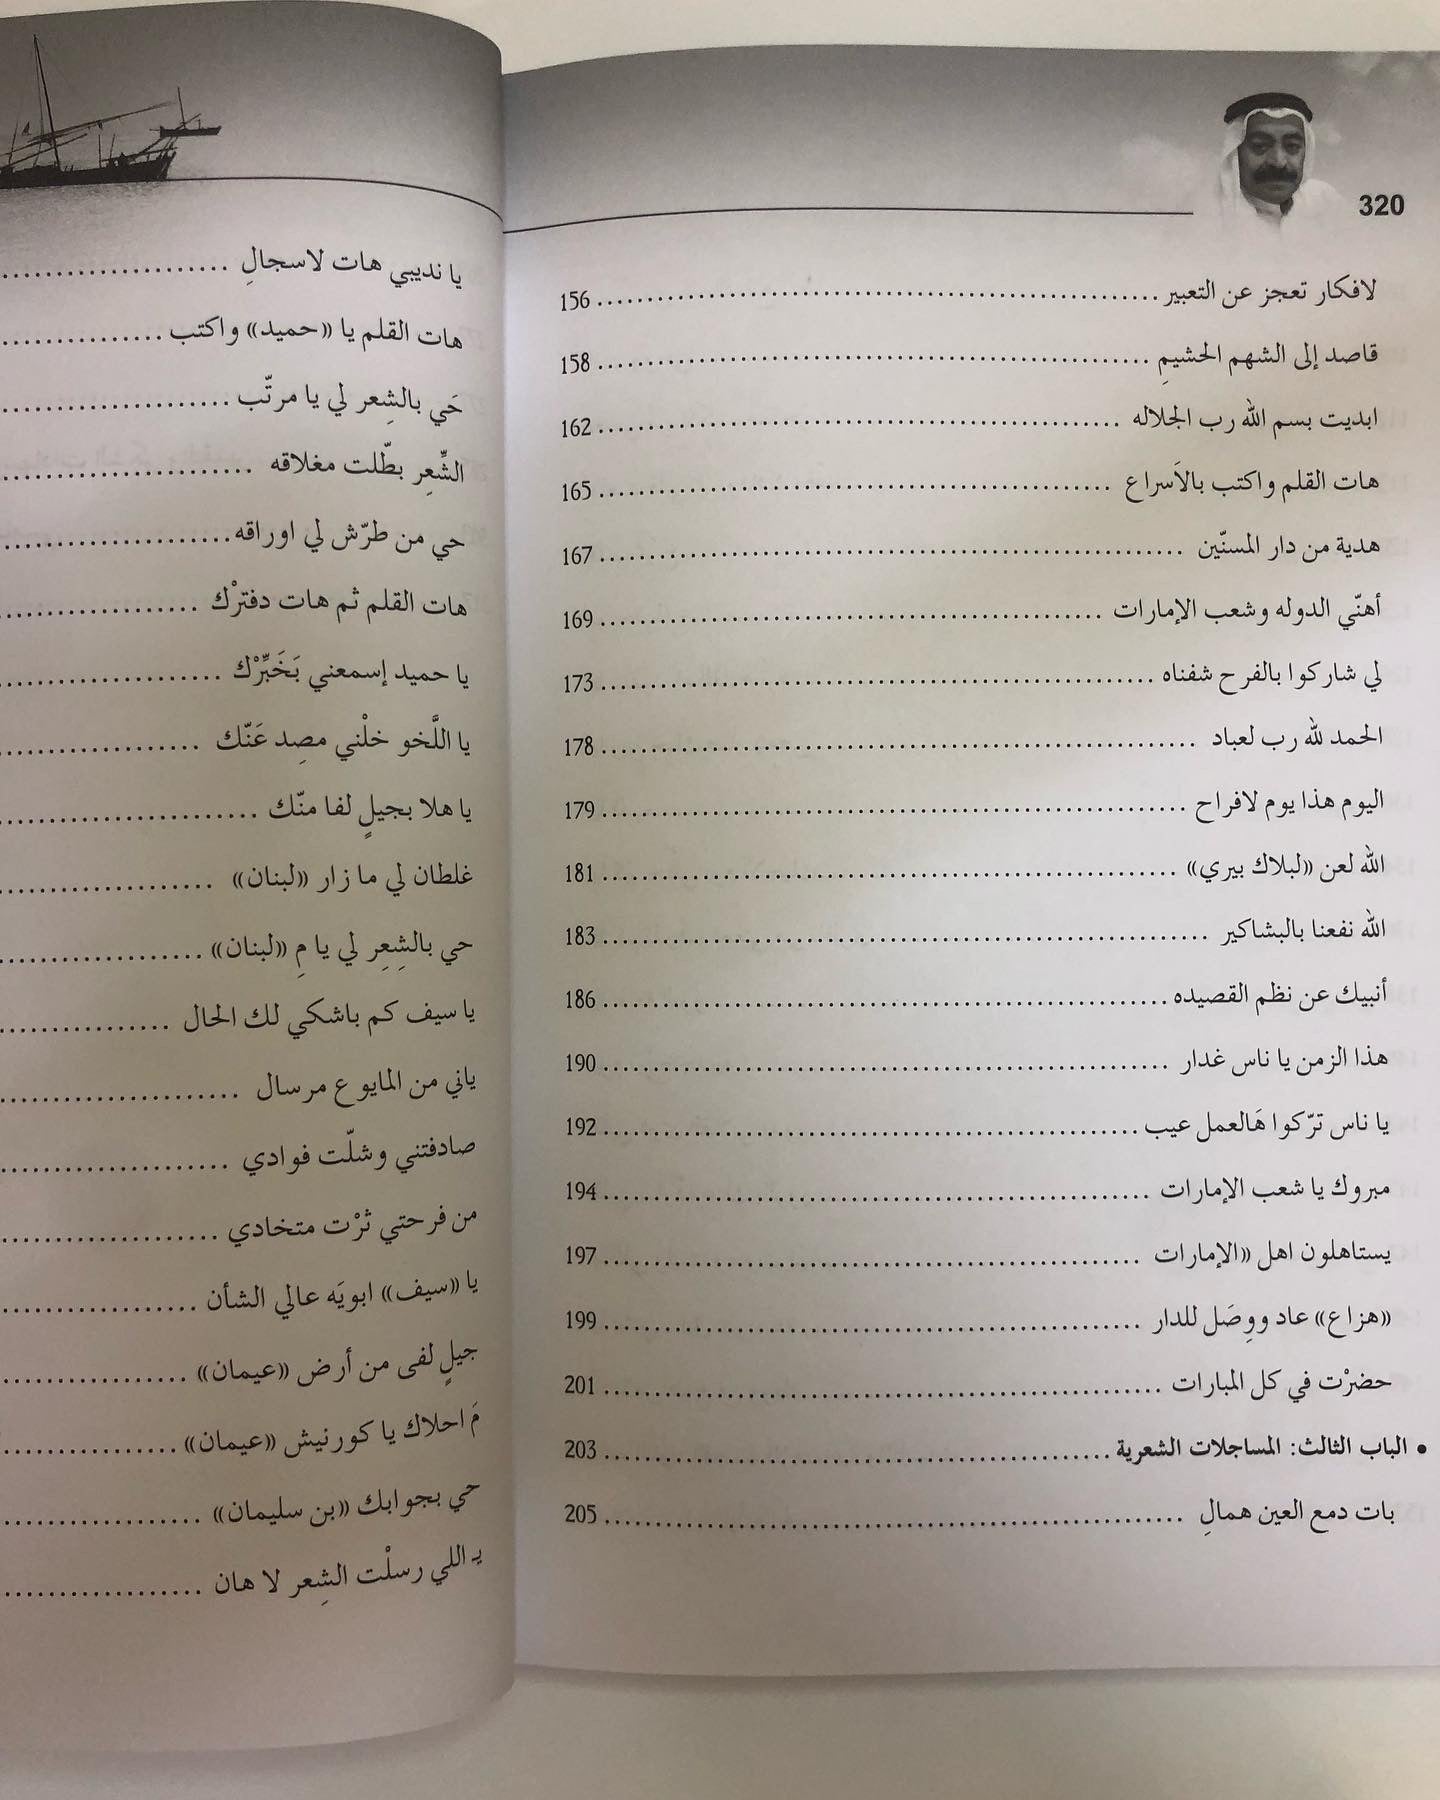 320
لافكار تعجز عن التعبير ........ 156
قاصد إلى الشهم الحشيمِ ........ 158
ابديت بسم الله رب الجلاله ........ 162
هات القلم واكتب بالاَسراع ........ 165
هدية من دار المسنّين ........ 167
أهنّي الدوله وشعب الإمارات ........ 169
لي شاركوا بالفرح شفناه ........ 173
الحمد لله رب لعباد ........ 178
اليوم هذا يوم لافراح ........ 179
الله لعن «لبلاك بيري» ........ 181
الله نفعنا بالبشاكير ........ 183
أنبيك عن نظم القصيده ........ 186
هذا الزمن يا ناس غدار ........ 190
يا ناس ترّكوا هَالعمل عيب ........ 192
مبروك يا شعب الإمارات ........ 194
يستاهلون اهل «الإمارات ........ 197
«هزاع» عاد ووِصَل للدار ........ 199
حضرْت في كل المبارات ........ 201
• الباب الثالث: المساجلات الشعرية ........ 203
بات دمع العين همالِ ........ 205
يا نديبي هات لاسجالِ ........
هات القلم يا «حميد» واكتب ........
حَي بالشِعر لي يا مرتّب ........
الشِّعِر بطّلت مغلاقه ........
حي من طرّش لي اوراقه ........
هات القلم ثم هات دفترْك ........
يا حميد إسمعني بَخَبِّرْك ........
يا اللَّخو خلْني مصِد عَنّك ........
يا هلا بجيلٍ لفا منّك ........
غلطان لي ما زار «لبنان» ........
حي بالشِعِر لي يا مِ «لبنان» ........
يا سيف كم باشكي لك الحال ........
ياني من المايو ع مرسال ........
صادفتني وشلّت فوادي ........
من فرحتي ثرْت متخادي ........
يا «سيف» ابويَه عالي الشأن ........
جيلٍ لفى من أرض «عيمان» ........
مَ احلاك يا كورنيش «عيمان» ........
حي بجوابك «بن سليمان» ........
يـ اللي رسلْت الشِعر لا هان ........